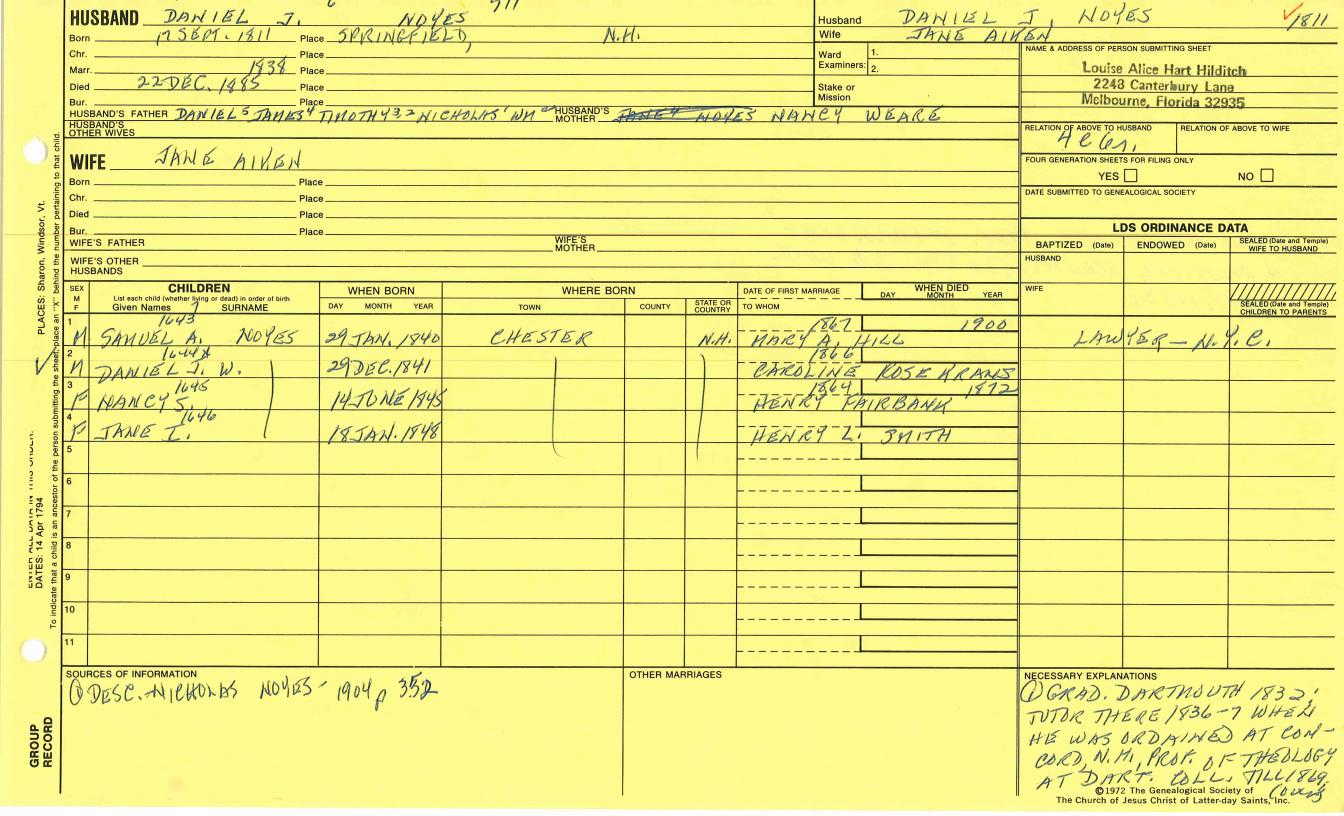 HUSBAND DANIEL J. NOYES
Born 17 SEPT. 1811 Place SPRINGFIELD, N.H.
Chr. Place
Marr. 1838 Place
Died 22 DEC. 1885 Place
Bur. Place
HUSBAND'S FATHER DANIEL5 JAMES4 TIMOTHY3,2 NICHOLAS1 WM HUSBAND'S MOTHER NANCY WEARE
HUSBAND'S OTHER WIVES
Husband DANIEL J. NOYES 1811
Wife JANE AIKEN
Ward Examiners: 1.
2.
Stake or Mission
NAME & ADDRESS OF PERSON SUBMITTING SHEET
Louise Alice Hart Hilditch
2243 Canterbury Lane
Melbourne, Florida 32935
RELATION OF ABOVE TO HUSBAND RELATION OF ABOVE TO WIFE
FOUR GENERATION SHEETS FOR FILING ONLY
YES NO
DATE SUBMITTED TO GENEALOGICAL SOCIETY
WIFE JANE AIKEN
Born Place
Chr. Place
Died Place
Bur. Place
WIFE'S FATHER WIFE'S MOTHER
WIFE'S OTHER HUSBANDS
LDS ORDINANCE DATA
BAPTIZED (Date) ENDOWED (Date) SEALED (Date and Temple) WIFE TO HUSBAND
HUSBAND
WIFE
SEALED (Date and Temple) CHILDREN TO PARENTS
SEX M F
CHILDREN
List each child (whether living or dead) in order of birth
Given Names SURNAME
WHEN BORN
DAY MONTH YEAR
WHERE BORN
TOWN COUNTY STATE OR COUNTRY
DATE OF FIRST MARRIAGE
TO WHOM
WHEN DIED
DAY MONTH YEAR
1 1643 1867 1900
M SAMUEL A. NOYES 29 JAN. 1840 CHESTER N.H. MARY A. HILL LAWYER — N.Y.C.
2 1644x 1866
M DANIEL J. W. 29 DEC. 1841 CAROLINE ROSEKRANS
3 1645 1864 1872
F NANCY S. 14 JUNE 1845 HENRY FAIRBANK
4 1646
F JANE I. 18 JAN. 1848 HENRY L. SMITH
5
6
7
8
9
10
11
SOURCES OF INFORMATION
① DESC. NICHOLAS NOYES - 1904 p 352
OTHER MARRIAGES
NECESSARY EXPLANATIONS
① GRAD. DARTMOUTH 1832;
TUTOR THERE 1836-7 WHEN
HE WAS ORDAINED AT CON-
CORD, N.H., PROF. OF THEOLOGY
AT DART. COLL. TILL 1869.
(over)
©1972 The Genealogical Society of
The Church of Jesus Christ of Latter-day Saints, Inc.
PLACES: Sharon, Windsor, Vt.
DATES: 14 Apr 1794
To indicate that a child is an ancestor of the person submitting the sheet, place an "X" behind the number pertaining to that child.
GROUP RECORD